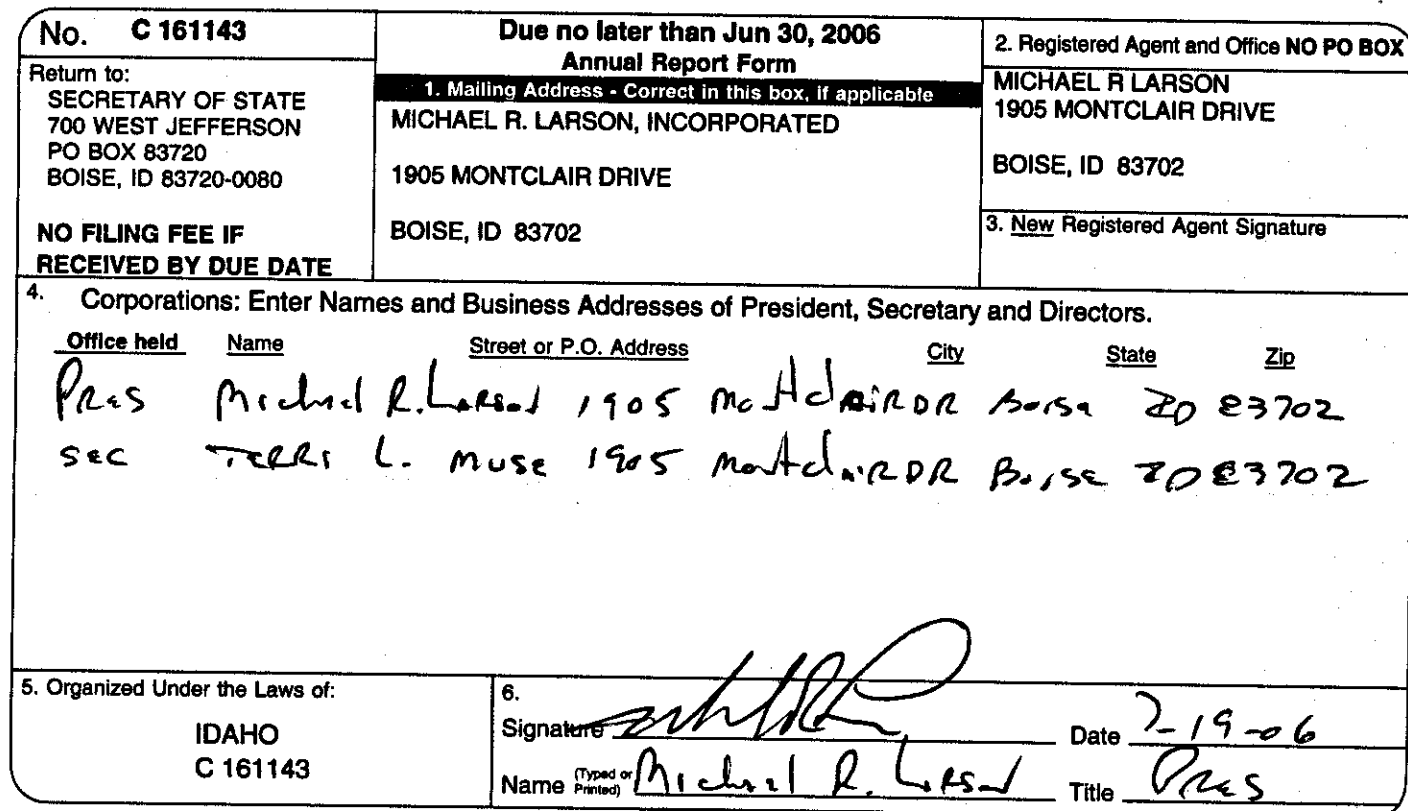 No. C 161143
Return to:
SECRETARY OF STATE
700 WEST JEFFERSON
PO BOX 83720
BOISE, ID 83720-0080
NO FILING FEE IF
RECEIVED BY DUE DATE
Due no later than Jun 30, 2006
Annual Report Form
1. Mailing Address - Correct in this box, if applicable
MICHAEL R. LARSON, INCORPORATED
1905 MONTCLAIR DRIVE
BOISE, ID 83702
2. Registered Agent and Office NO PO BOX
MICHAEL R LARSON
1905 MONTCLAIR DRIVE
BOISE, ID 83702
3. New Registered Agent Signature
4. Corporations: Enter Names and Business Addresses of President, Secretary and Directors.
Office held Name Street or P.O. Address City State Zip
Pres Michael R. Larson 1905 Montclair DR Boise ID 83702
Sec Terri L. Muse 1905 Montclair DR Boise ID 83702
5. Organized Under the Laws of:
IDAHO
C 161143
6.
Signature Date 7-19-06
Name (Typed or Printed) Michael R. Larson Title Pres